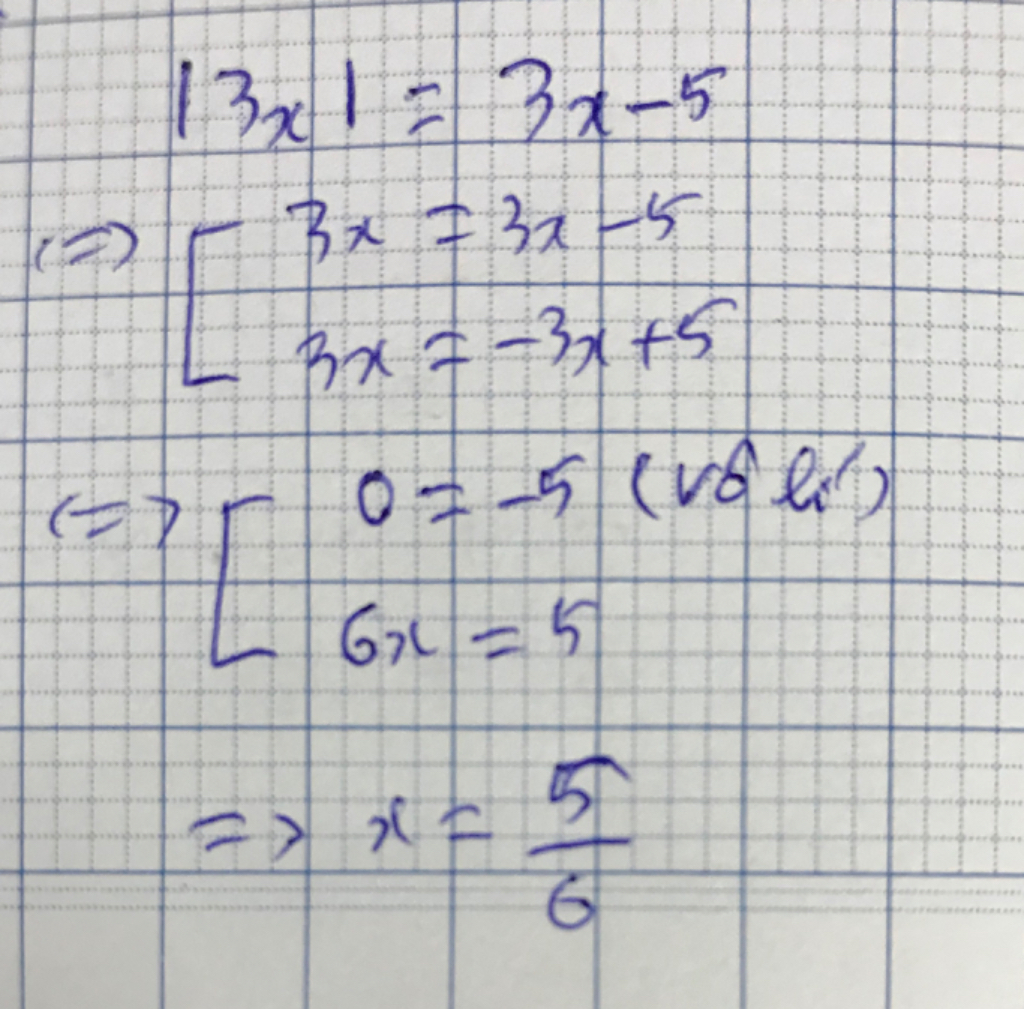 |3x| = 3x - 5
<=> [ 3x = 3x - 5
3x = -3x + 5
<=> [ 0 = -5 (vô lí)
6x = 5
=> x = 5/6